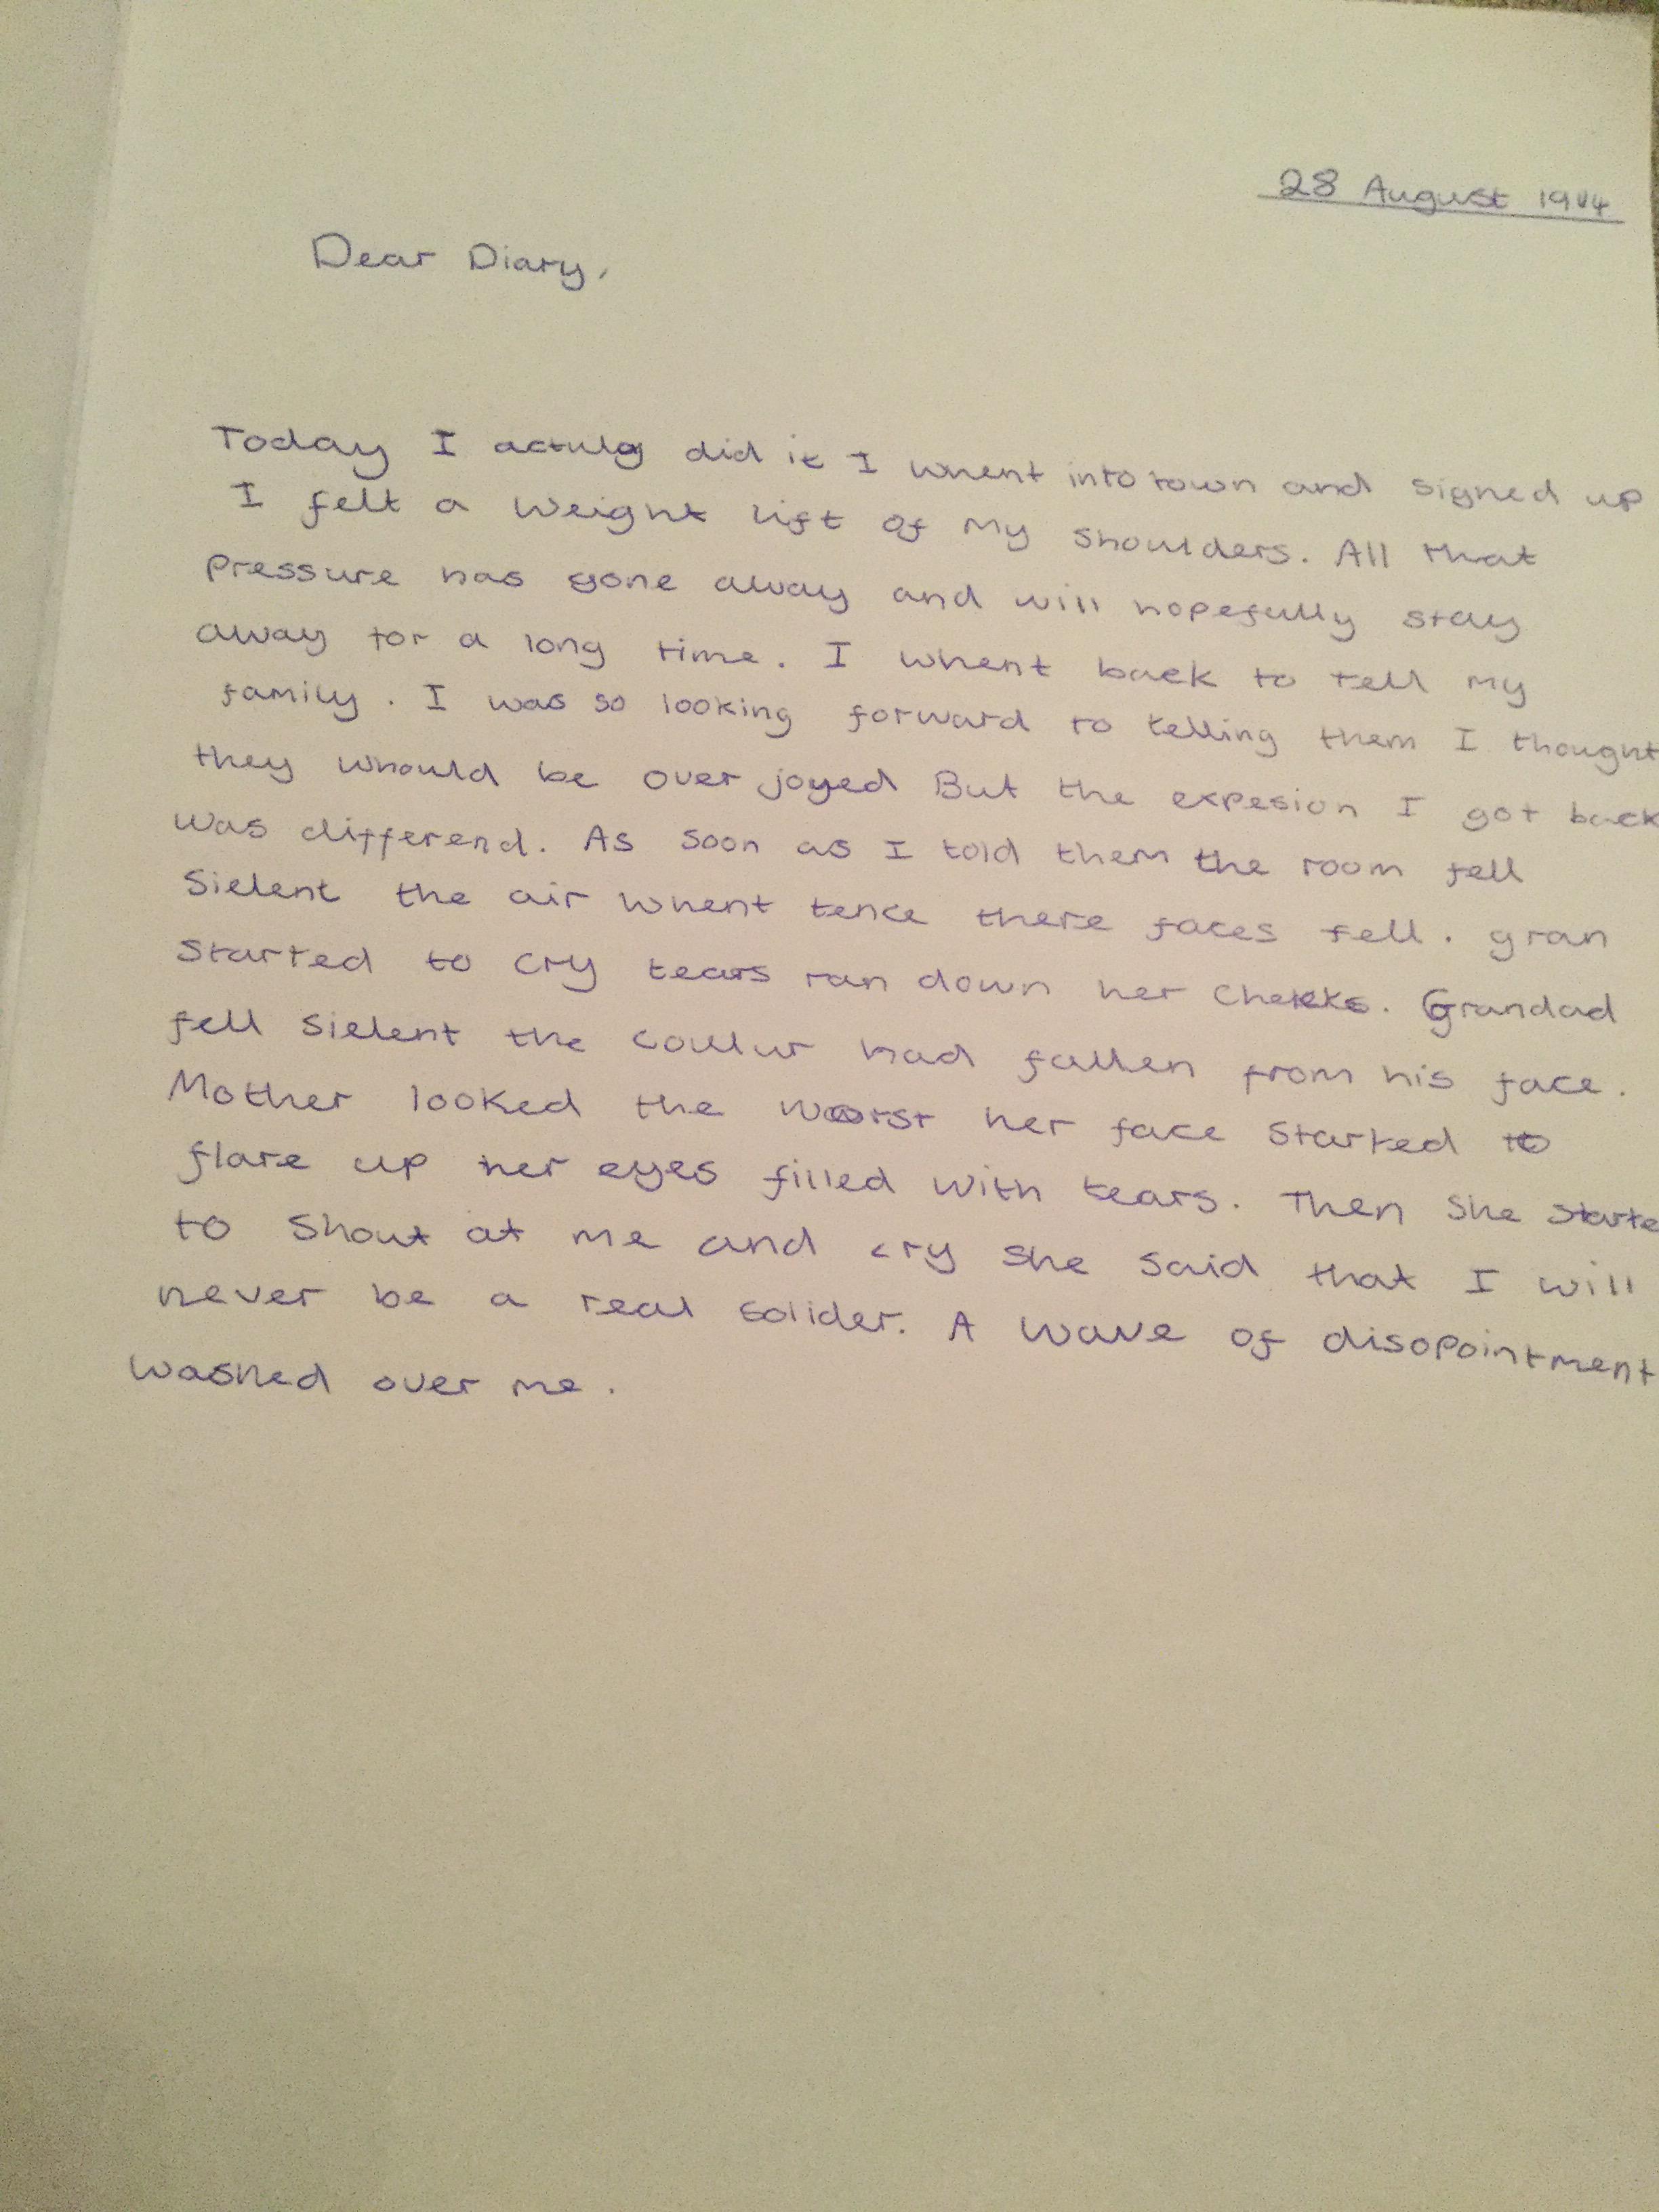 28 August 1914
Dear Diary,
Today I actuly did it I whent into town and signed up
I felt a weight lift of my shoulders. All that
pressure has gone away and will hopefully stay
away for a long time. I whent back to tell my
family. I was so looking forward to telling them I thought
they whould be over joyed But the expesion I got back
was differend. As soon as I told them the room fell
sielent the air whent tence there faces fell. gran
started to cry tears ran down her cheeks. Grandad
fell sielent the coulur had fallen from his face.
Mother looked the worst her face started to
flare up her eyes filled with tears. Then she starte
to shout at me and cry she said that I will
never be a real solider. A wave of disopointment
washed over me.